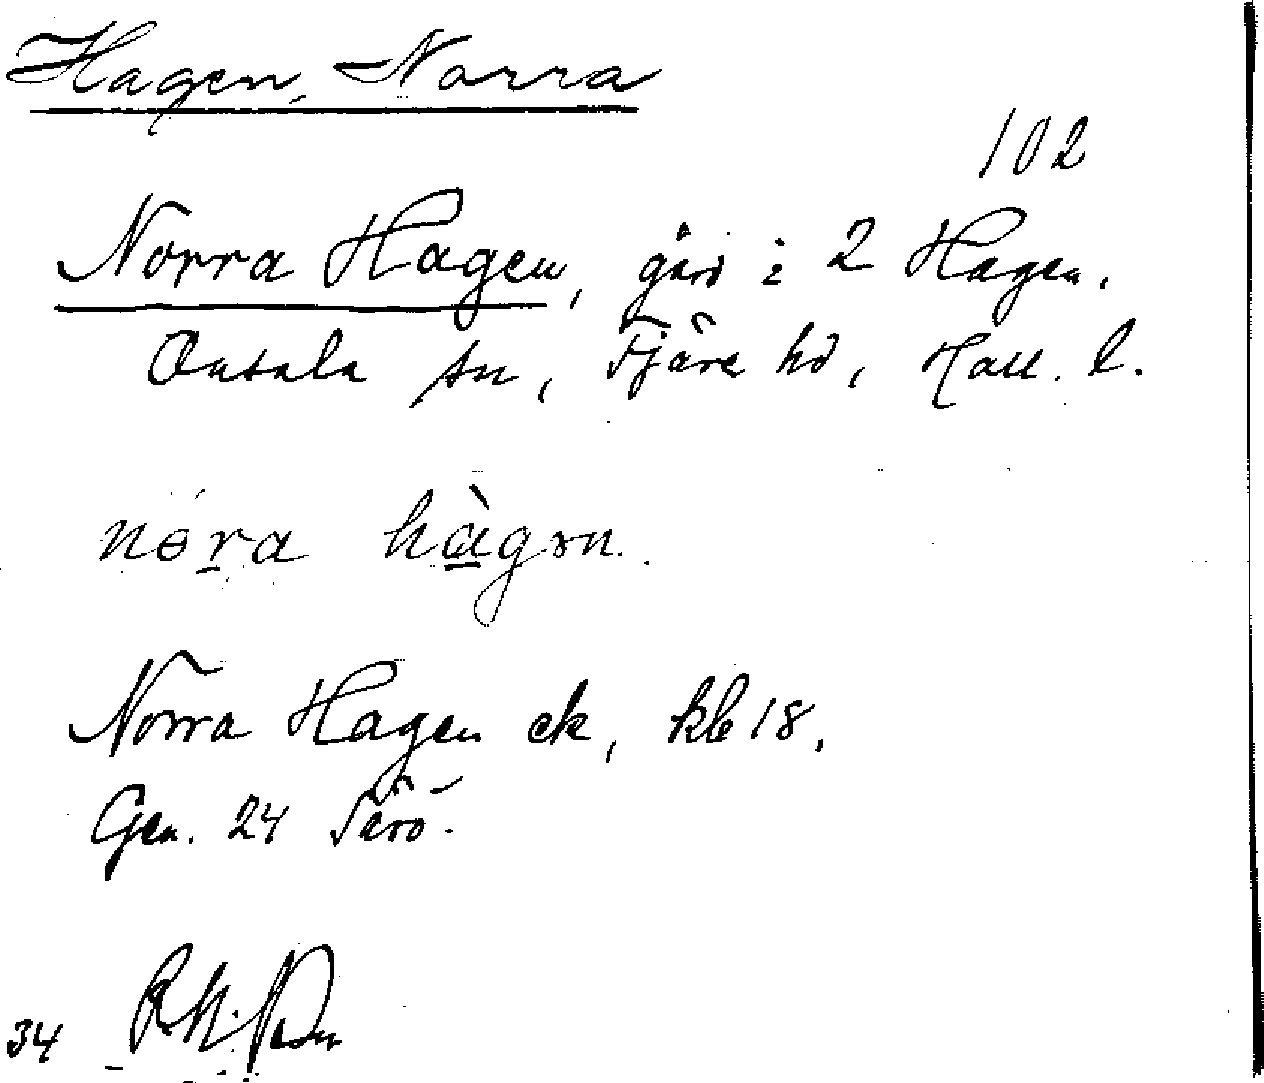 Hagen, Norra
102
Norra Hagen, gård i 2 Hagen.
Onsala sn, Fjäre hd, Hall. l.
nɵra hàgən.
Norra Hagen ek, kb 18,
Gen. 24 Särö.
34